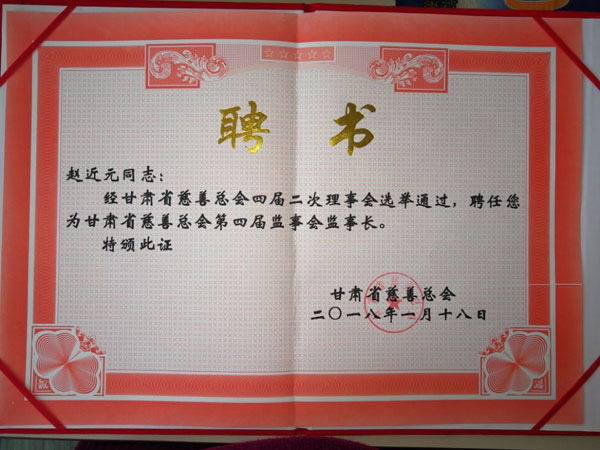 聘 书
赵近元同志：
经甘肃省慈善总会四届二次理事会选举通过，聘任您
为甘肃省慈善总会第四届监事会监事长。
特颁此证
甘肃省慈善总会
二〇一八年一月十八日